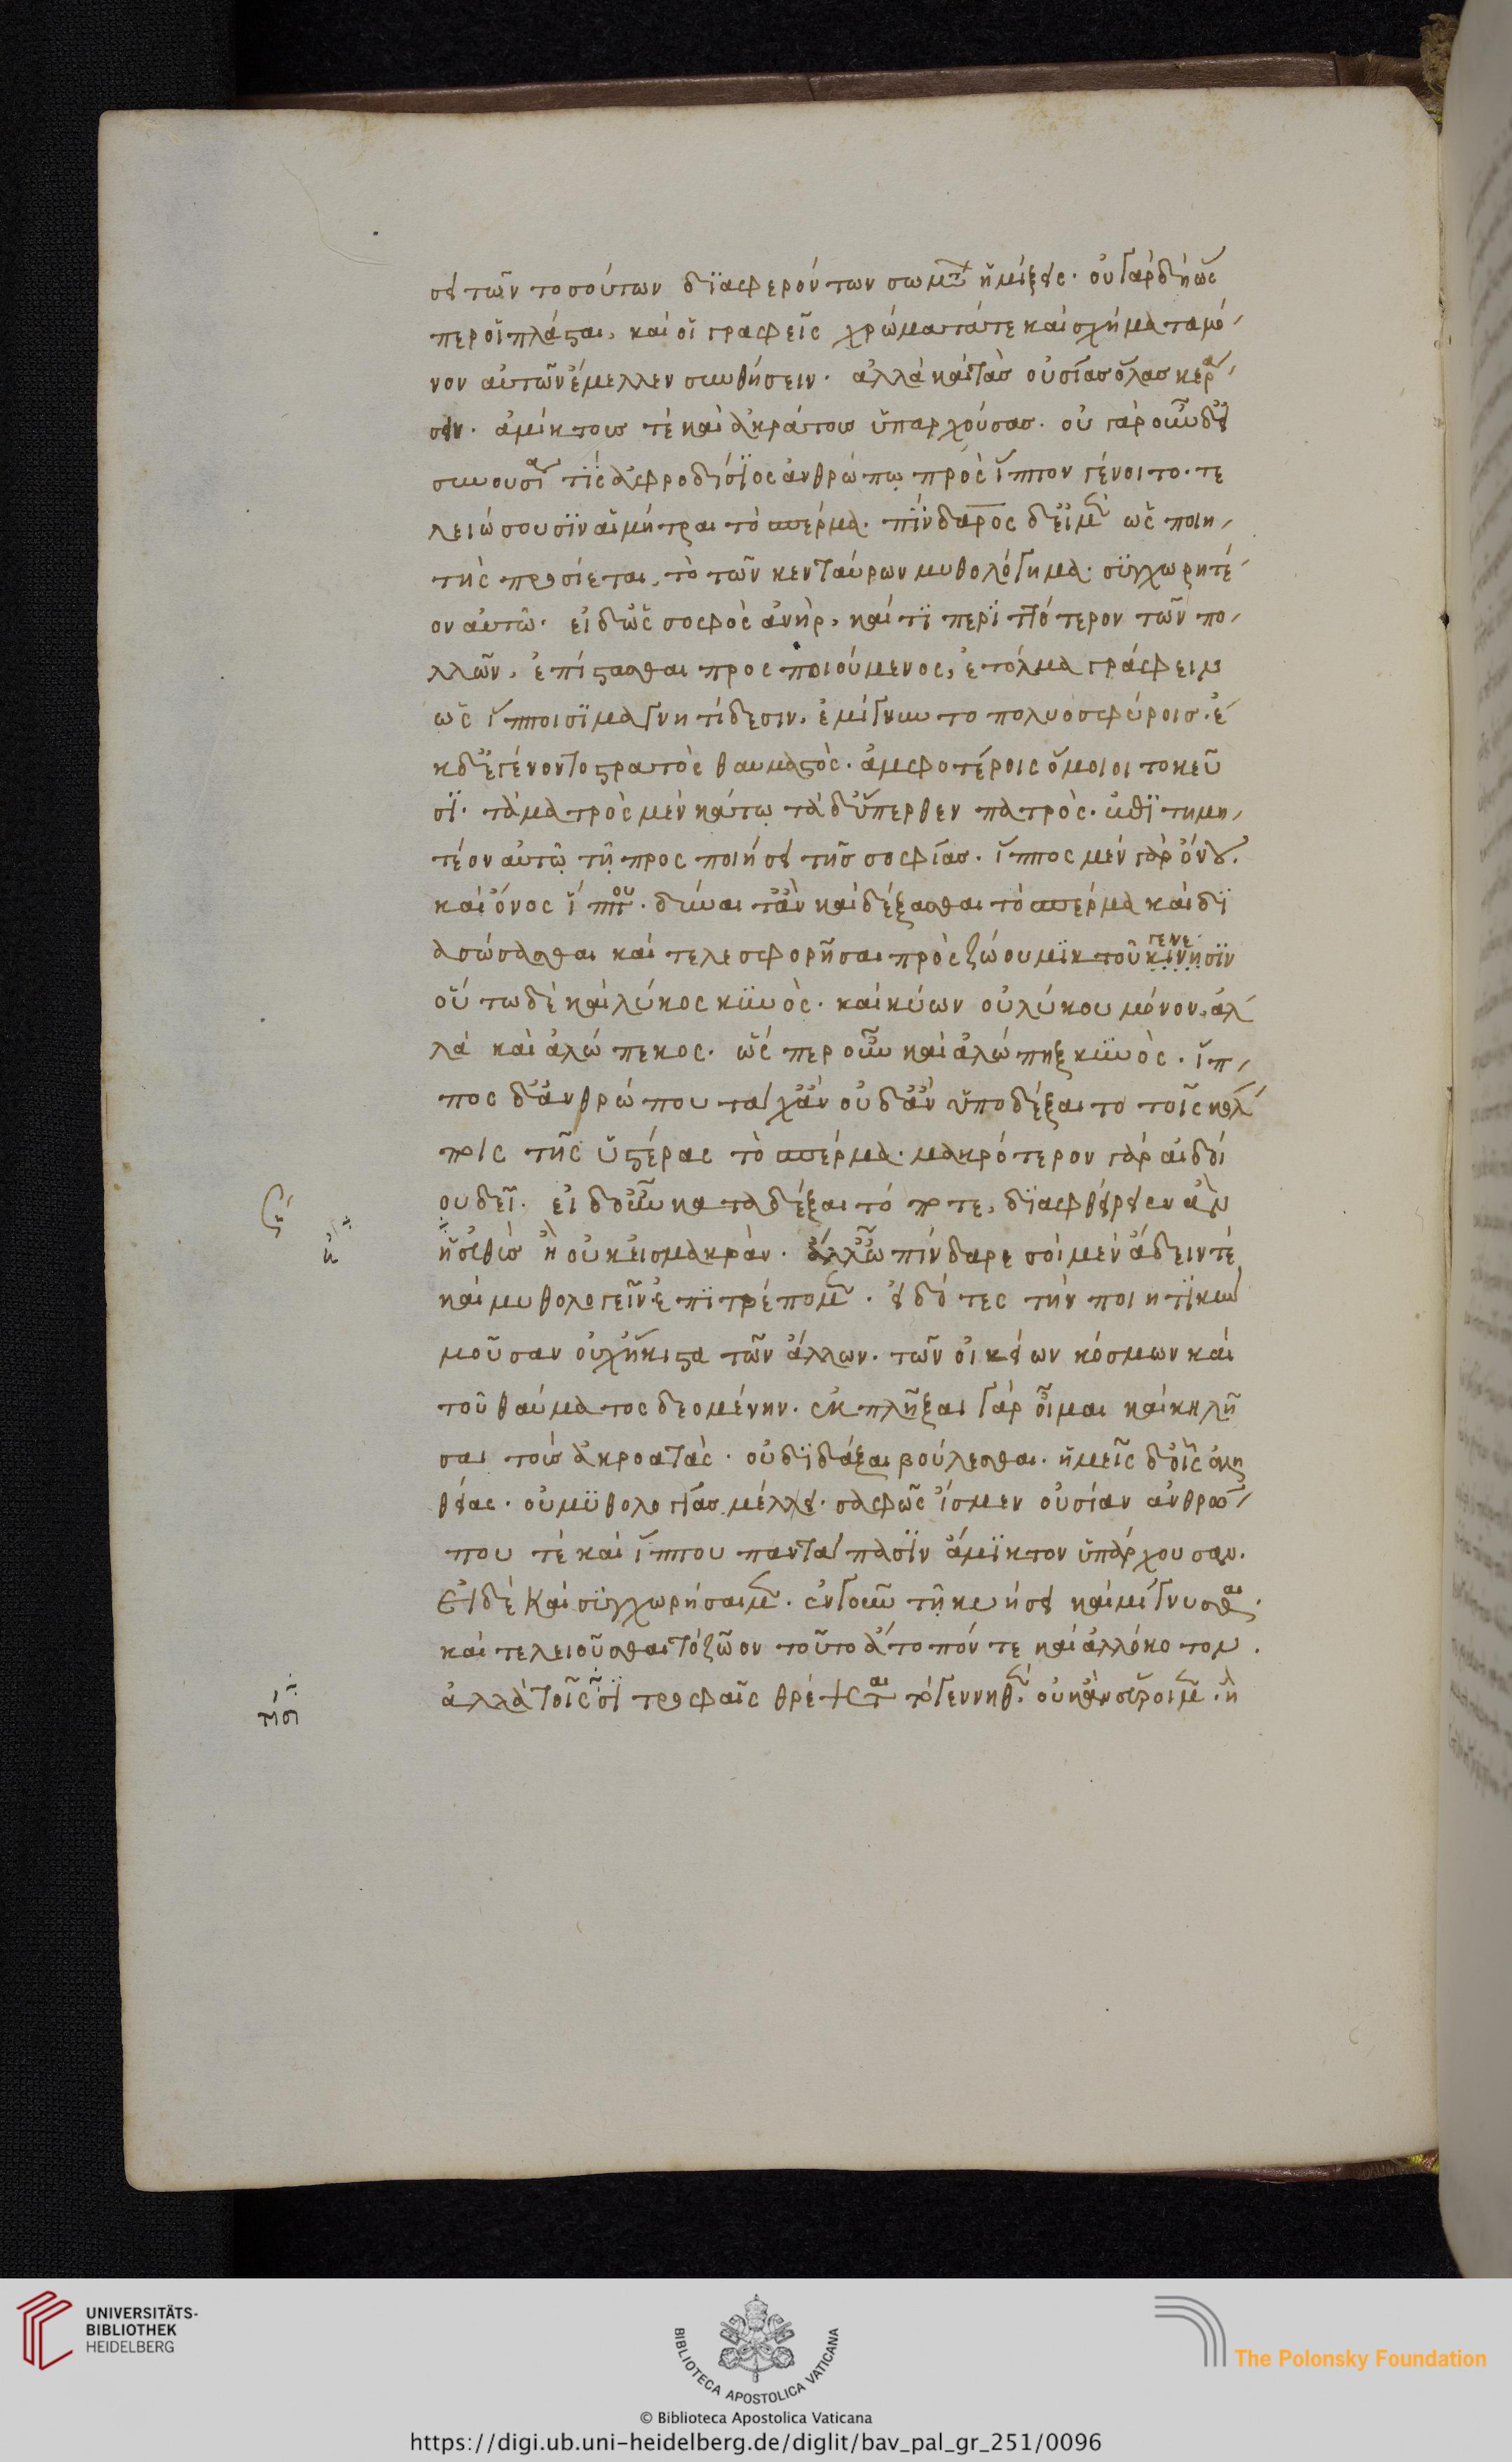 σει τῶν τοσούτων διαφερόντων σωμάτων ἡ μίξις. οὐ γὰρ δὴ ὥσ
περ οἱ πλάσται, καὶ οἱ γραφεῖς χρώματά τε καὶ σχήματα μό
νον αὐτῶν ἔμελλεν συνθήσειν. ἀλλὰ καὶ τὰς οὐσίας ὅλας κερά
σειν. ἀμίκτους τὲ καὶ ἀκράτους ὑπαρχούσας. οὐ γὰρ οὖν δ' εἰ
συνουσία τίς ἀφροδίσιος ἀνθρώπῳ πρὸς ἵππον γένοιτο. τε
λειώσουσιν αἱ μήτραι τὸ σπέρμα. πίνδαρος δ' εἰ μὲν ὡς ποιη
τὴς προσίεται, τὸ τῶν κενταύρων μυθολόγημα. συγχωρητέ
ον αὐτῶ. εἰ δ' ὡς σοφὸς ἀνὴρ, καί τι περιττότερον τῶν πο
λλῶν, ἐπίστασθαι προσποιούμενος, ἐτόλμα γράφειν
ὡς ἵπποισι μαγνητίδεσιν, ἐμίγνυντο πολυοσφύροις. ἐ
κ δ' ἐγένοντο στρατὸς θαυμαστὸς. ἀμφοτέροις ὅμοιοι τοκεῦ
σι. τὰ ματρὸς μὲν κάτω τὰ δ' ὕπερθεν πατρὸς. ἐπιτιμη
τέον αὐτῷ τῇ προσποιήσει τῆς σοφίας. ἵππος μὲν γὰρ ὄνου.
καὶ ὄνος ἵππου. δύναιτ' ἂν καὶ δέξασθαι τὸ σπέρμα καὶ δι
ασώσασθαι καὶ τελεσφορῆσαι πρὸς ζώου μικτοῦ κίνησιν
γένε
οὕτω δὲ καὶ λύκος κυνὸς. καὶ κύων οὐ λύκου μόνον, ἀλ
λὰ καὶ ἀλώπεκος. ὥς περ οὖν καὶ ἀλώπηξ κυνὸς. ἵπ
πος δ' ἀνθρώπου τάχ' ἂν οὐδ' ἂν ὑποδέξαιτο τοῖς κόλ
ποις τῆς ὑστέρας τὸ σπέρμα. μακρότερον γὰρ αἰδοί
ου δεῖ. εἰ δ' οὖν καταδέξαιτό ποτε, διαφθείρειεν ἂν
ἢ εὐθὺς ἢ οὐκ εἰς μακρὰν. ἀλλ' ὦ πίνδαρε σοὶ μὲν ἄδειν τέ
καὶ μυθολογεῖν ἐπιτρέπομεν. εἰδότες τὴν ποιητικὴν
μοῦσαν οὐχ' ἥκιστα τῶν ἄλλων. τῶν οἰκείων κόσμων καὶ
τοῦ θαύματος δεομένην. ἐκπλῆξαι γὰρ οἶμαι καὶ κηλῆ
σαι τοὺς ἀκροατὰς. οὐ διδάξαι βούλεσθαι. ἡμεῖς δ' οἷς ἀλη
θείας. οὐ μυθολογίας μέλλει. σαφῶς ἴσμεν οὐσίαν ἀνθρώ
που τὲ καὶ ἵππου παντάπασιν ἄμικτον ὑπάρχουσαν.
Εἰ δὲ καὶ συγχωρήσαιμεν. ἐν τοιν τῇ κυήσει καὶ μίγνυσθαι.
καὶ τελειοῦσθαι τὸ ζῶον τοῦτο ἄτοπόν τε καὶ ἀλλόκοτον.
ἀλλὰ τοῖς εἰ τροφαῖς θρέψεται τὸ γεννηθέν. οὐκ ἂν εὕροιμεν. ἢ
UNIVERSITÄTS-
BIBLIOTHEK
HEIDELBERG
BIBLIOTECA APOSTOLICA VATICANA
The Polonsky Foundation
© Biblioteca Apostolica Vaticana
https://digi.ub.uni-heidelberg.de/diglit/bav_pal_gr_251/0096